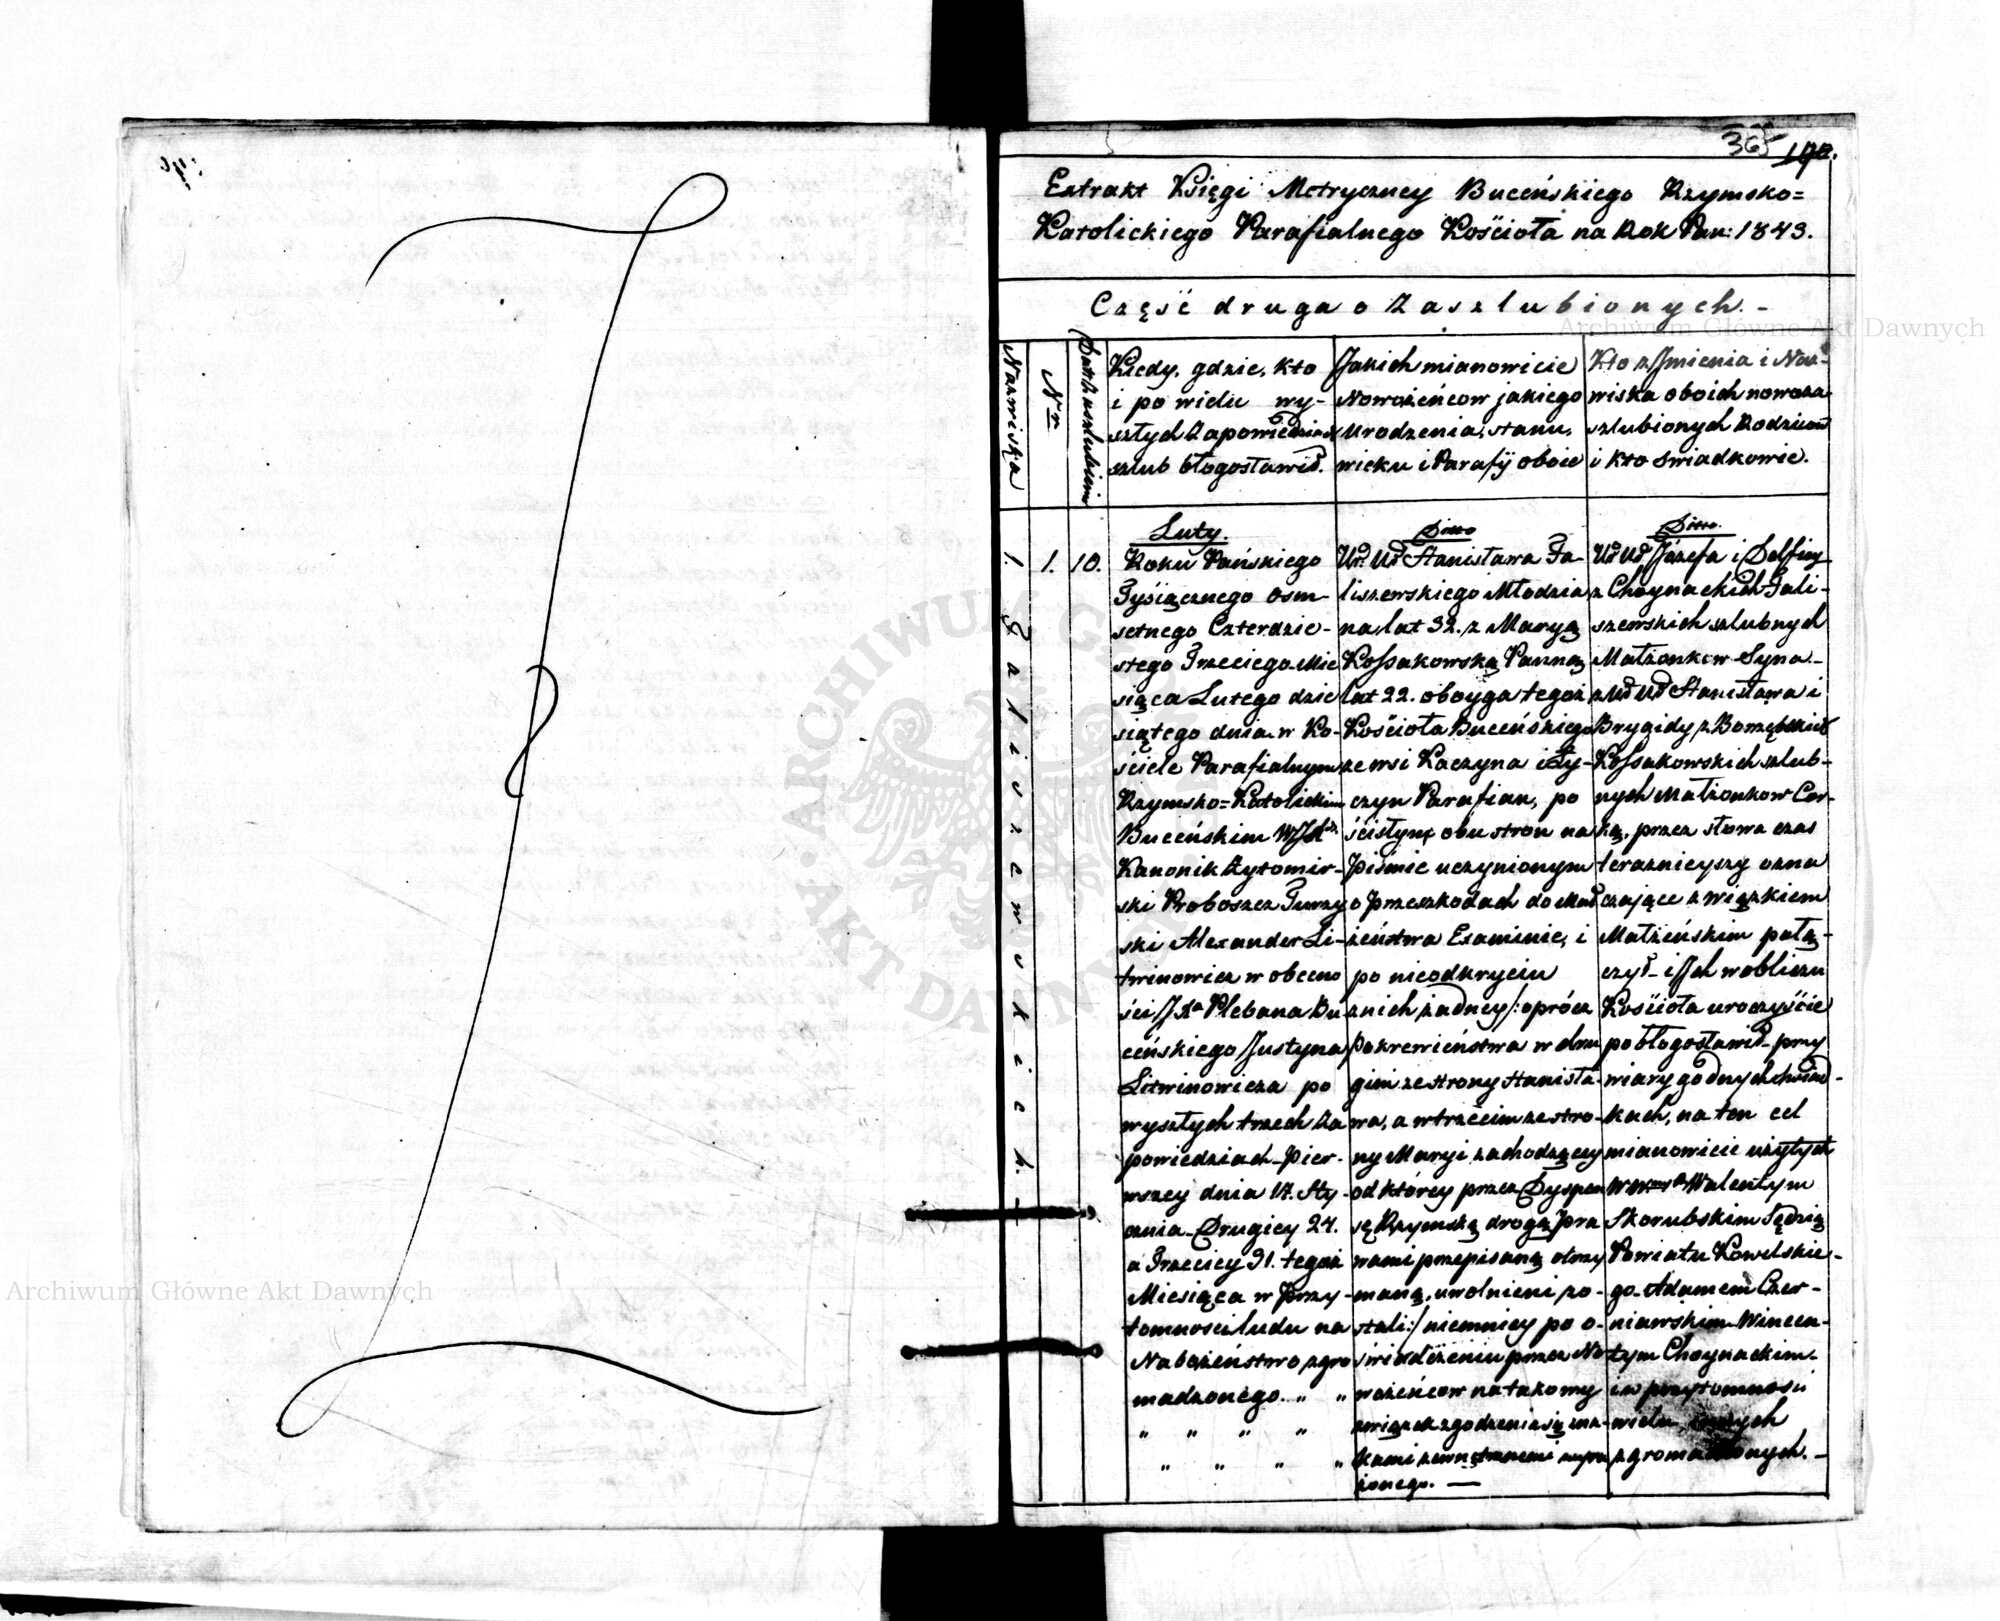 365
Extrakt Księgi Metryczney Buceńskiego Rzymsko=
Katolickiego Parafialnego Kościoła na Rok Pan: 1843.
Część druga o Zaszlubionych. -
Nazwiska
Nr
Kiedy, gdzie, kto
i po wielu wy-
szłych Zapowiedziach
szlub błogosławił.
Jakich mianowicie
Nowożeńcow jakiego
urodzenia, stanu,
wieku i Parafij oboie
Kto z Jmienia i Naz-
wiska oboich nowoza
szlubionych Rodzicow
i kto swiadkowie.
1. Galiszewskich. -
1.
10.
Luty.
Roku Pańskiego
Tysiącznego osm-
setnego Czterdzie-
stego Trzeciego Mie
siąca Lutego dzie
siątego dnia w Ko-
ściele Parafialnym
Rzymsko=Katolickim
Buceńskim
Kanonik Żytomir-
ski Proboszcz Turzy
ski Alexander Li-
twinowicz w obecno
ści Plebana Bu
ceńskiego Justyna
Litwinowicza po
wyszłych trzech Za
powiedziach Pier-
wszey dnia 17. Sty-
cznia Drugiey 24.
a Trzeciey 31. tegoż
Miesiąca w Przy-
tomnosci ludu na
Nabożeństwo zgro
madzonego. " "
" " " "
" " " "
Ditto
Ur. Ur Stanisława Ga-
liszewskiego Młodzia
na lat 32. z Maryą
Kossakowską Panną
lat 22. oboyga tegoż
Kościoła Buceńskiego
ze wsi Kaczyna i Ży-
czyn Parafian, po
ścisłym obu stron na
piśmie uczynionym
o przeszkodach do Mał
żeństwa Examinie, i
po nieodkryciu
z nich żadney /: oprócz
Pokrewieństwa w dru
gim ze strony Stanisła-
wa, a w trzecim ze stro-
ny Maryi zachodzącey
od którey przez Dyspen
sę Rzymską drogą pra
wami przepisaną otrzy
maną, uwolnieni zo-
stali:/ niemniey po o-
świadczeniu przez No
wożeńcow na takowy
związek zgodzenia się zna-
kami zewnętrznemi wyra
żonego. —
Ditto.
Ur Ur Józefa i Delfiny
z Choynackich Gali-
szewskich szlubnych
Małżonkow Syna -
z Ur Ur Stanisława i
Brygidy z
Kossakowskich szlub-
nych Małżonkow Cor-
ką, przez słowa czas
teraznieyszy ozna
czające związkiem
Małżeńskim połą-
czył - i Jch w obliczu
Kościoła uroczyście
pobłogosławił przy
wiarygodnych Swiad-
kach, na ten cel
mianowicie użytych
Walentym
Skorubskim Sędzią
Powiatu Kowelskie-
go. Adamem Czer-
niawskim Wincen-
tym Choynackim.
i w przytomnosci
wielu innych
zgromadzonych. -
Archiwum Główne Akt Dawnych
Archiwum Główne Akt Dawnych
ARCHIWUM GŁÓWNE AKT DAWNYCH